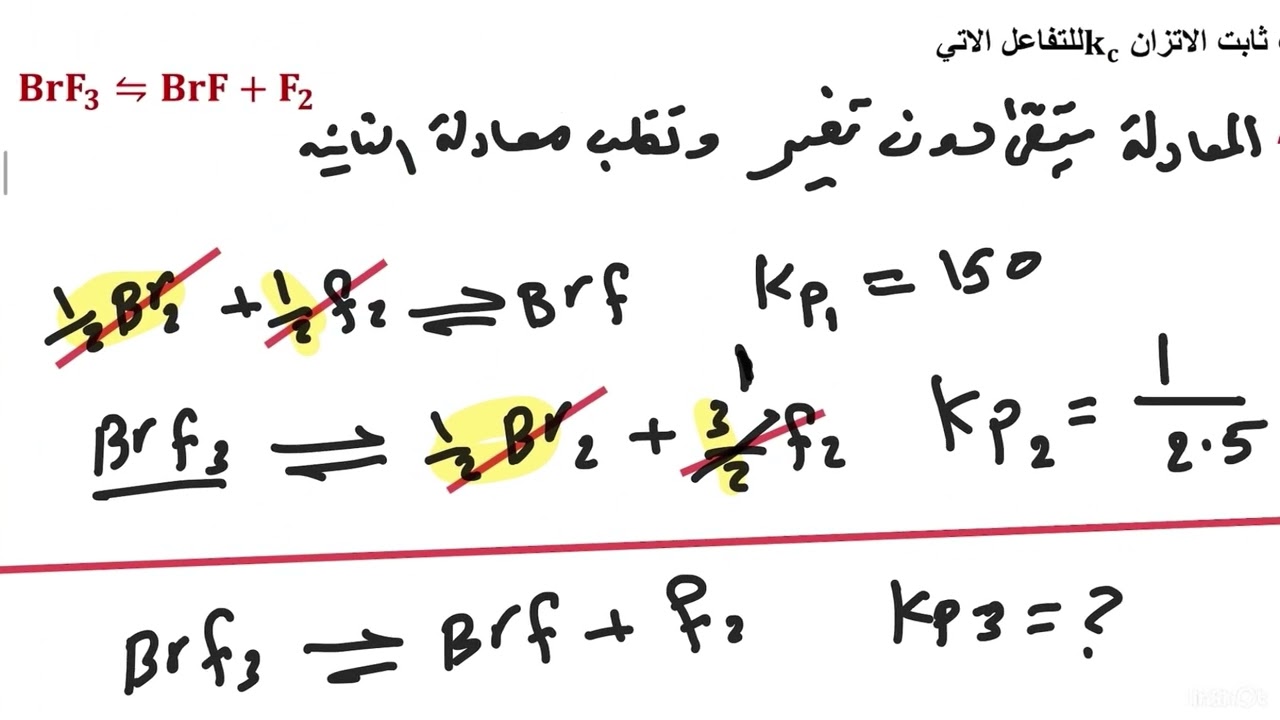 ثابت الاتزان kcللتفاعل الاتي
BrF₃ ⇋ BrF + F₂
المعادلة ستبقى دون تغير وتقلب معادلة الثانيه
½ Br₂ + ½ f₂ ⇌ Brf Kp₁ = 150
Brf₃ ⇌ ½ Br₂ + 3/2 f₂ Kp₂ = 1/2.5
1
Brf₃ ⇌ Brf + f₂ Kp3 = ?